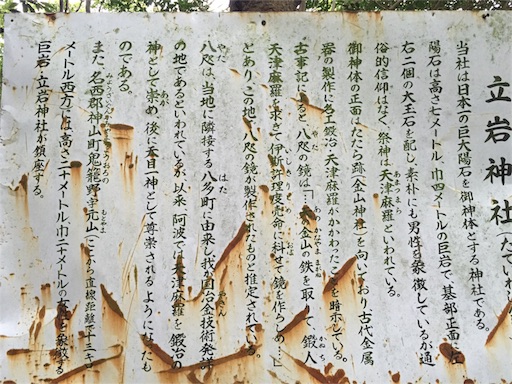 立岩神社(たていわ
当社は日本一の巨大陽石を御神体とする神社である。
陽石は高さ七メートル、巾四メートルの巨岩で、基部正面に左
右二個の大玉石を配し、素朴にも男性を象徴しているが通
俗的信仰はなく、祭神は天津麻羅といわれている。
御神体の正面はたたら跡(金山神社)を向いており古代金属
器の製作に名工鍛冶・天津麻羅がかかわったことを暗示している。
古事記によると八咫の鏡は「天金山の鉄を取って、鍛人
天津麻羅を求ぎて伊斯許理度売命に科せて鏡を作らしめ…」
とあり、この地で八咫の鏡が製作されたものと推定されている。
八咫は、当地に隣接する八多町に由来し、我国冶金技術発祥
の地であるといわれているが、以来、阿波では天津麻羅を鍛冶の
神として崇め、後に天目一神として尊崇されるようになったも
のである。
また、名西郡神山町鬼籠野字元山(ここから直線距離で十二キロ
メートル西方)には高さ二十メートル、巾二十メートルの女性を象徴する
巨岩・立岩神社が鎮座する。